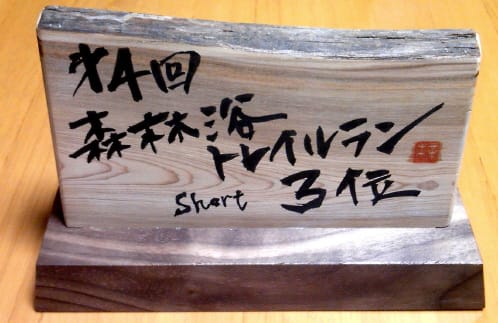 才4回
森林浴
トレイルラン
Short 3位